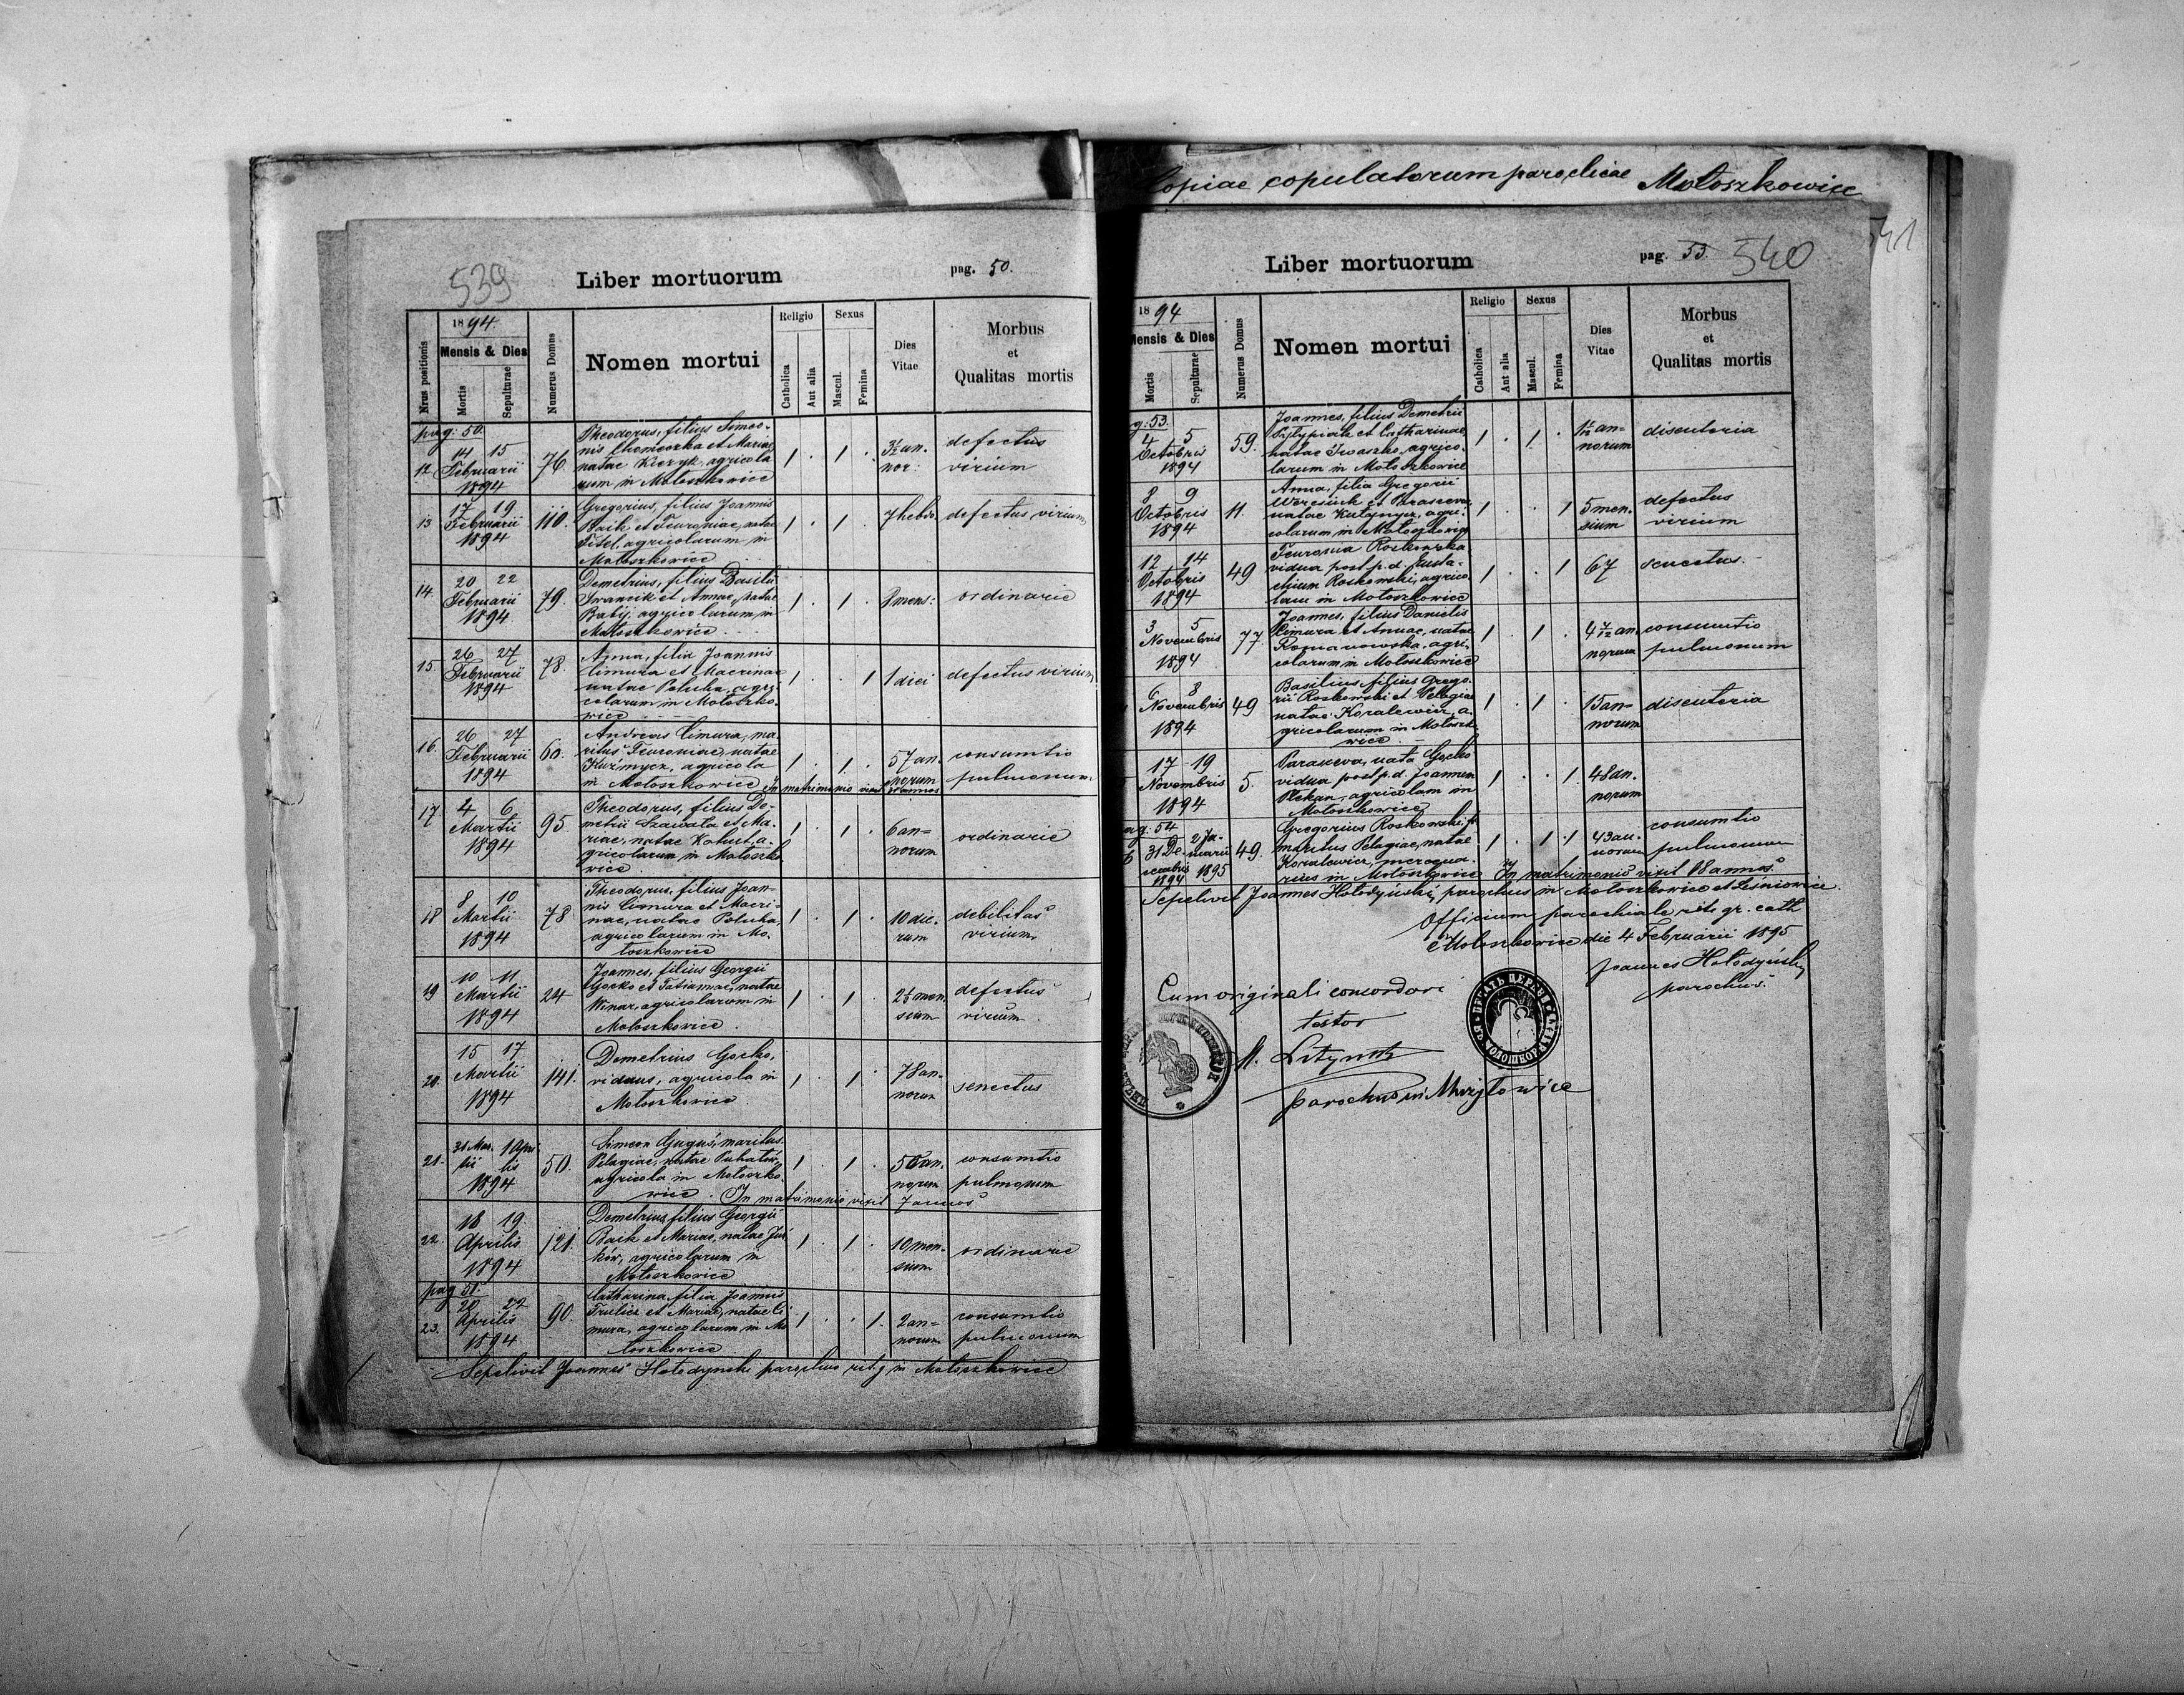 Copiae copulatorum parochiae Mołoszkowice
539
Liber mortuorum
pag. 50.
1894.
Nrus positionis
Mensis & Dies
Mortis
Sepulturae
Numerus Domus
Nomen mortui
Religio
Catholica
Aut alia
Sexus
Mascul.
Femina
Dies Vitae
Morbus et Qualitas mortis
pag: 50.
12 14 15 Februarii 1894 76.
Theodorus, filius Simeo-
nis et Mariae
natae Kiczyk, agricola
rum in Mołoszkowice
1 . 1 . 3½ an-
nor:
defectus
virium
13 17 19 Februarii 1894 110.
Gregorius, filius Joannis
Baik et Feuroniae, natae
Titel, agricolarum in
Mołoszkowice
1 . 1 . 7 hebd. defectus virium
14. 20 22 Februarii 1894 79.
Demetrius, filius Basilii
Iwancik et Annae, natae
Babij, agricolarum in
Mołoszkowice
1 . 1 . mens: ordinarie
15 26 27 Februarii 1894 78.
Anna, filia Joannis
Cimura et Macrinae
natae Potuha, agri-
colarum in Mołoszko-
wice
1 . . 1 1 diei defectus virium
16. 26 27 Februarii 1894 60.
Andreas Cimura, ma-
ritus Feuroniae, natae
Kuźmycz, agricola
in Mołoszkowice In matrimonio vixit annos
1 . 1 . 57 an-
norum
consumtio
pulmonum
17 4 6 Martii 1894 95
Theodorus, filius De-
metrii Szawala et Ma-
riae, natae Kohut, a-
gricolarum in Mołoszko
wice
1 . 1 . 6 an=
norum
ordinarie
18 8 10 Martii 1894 78
Theodorus, filius Joan-
nis Cimura et Macri-
nae, natae Potuha,
agricolarum in Mo-
łoszkowice
1 . 1 . 10 die-
rum
debilitas
virium
19 10 11 Martii 1894 24
Joannes, filius Georgii
Gocko et Tatiannae, natae
Winar, agricolarum in
Mołoszkowice
1 . 1 . 2½ men
sium
defectus
virium
20. 15 17 Martii 1894 141.
Demetrius Gocko,
viduus, agricola in
Mołoszkowice
1 . 1 . 78 an-
norum
senectus
21. 31 Mar. 1 Apri
tii lis
1894 50.
Simeon Guguś, maritus
Pelagiae, natae Puhatów,
agricola in Mołoszko
wice. In matrimonio vixit 7 annos
1 . 1 . 50 an-
norum
consumtio
pulmonum
22. 18 19 Aprilis 1894 121.
Demetrius, filius Georgii
Baik et Mariae, natae Jus
ków, agricolarum in
Mołoszkowice
1 . 1 . 10 men-
sium
ordinarie
pag 51.
23. 20 22 Aprilis 1894 90.
Catharina, filia Joannis
Trulicz et Mariae, natae Ci
mura, agricolarum in Mo
łoszkowice
1 . . 1. 2 an=
norum
consumtio
pulmonum
Sepelivit Joannes Hołodyński parochus rit. g. in Mołoszkowice
541
Liber mortuorum
pag. 53. 540
1894
Mensis & Dies
Mortis
Sepulturae
Numerus Domus
Nomen mortui
Religio
Catholica
Aut alia
Sexus
Mascul.
Femina
Dies Vitae
Morbus et Qualitas mortis
4 5 Octobris 1894 59.
Joannes, filius Demetrii
et Catharinae,
natae Iwaszko, agrico-
larum in Mołoszkowice
1 . 1 . an=
norum
disenteria
8 9 Octobris 1894 11.
Anna, filia Gregorii
Weresiuk et Parascevae
natae Kutynycz, agri-
colarum in Mołoszkowice
1 . . 1 5 men-
sium
defectus
virium
12 14 Octobris 1894 49
Feuronia Roskowska
vidua post p. d. Justa-
chium Roskowski, agrico
lam in Mołoszkowice
1 . . 1 67 senectus.
3 5 Novembris 1894 77.
Joannes, filius Danielis
Cimura et Annae, natae
Romanowska, agri-
colarum in Mołoszkowice
1 . 1 . 4 7/12 an
norum
consumtio
pulmonum
6 8 Novembris 1894 49
Basilius, filius Grego-
rii Roskowski et Pelagiae
natae Kowalewicz, a-
gricolarum in Mołoszko
wice
1 . 1 . 15 an=
norum
disenteria
17 19 Novembris 1894 5.
Parasceva, nata Gocko
vidua post p. d. Joannem
Plekan, agricolam in
Mołoszkowice
1 . . 1. 48 an-
norum
pag: 54
31 De- 2 Ja-
cembris nuarii
1894 1895 49.
Gregorius Roskowski
maritus Pelagiae, natae
Kowalewicz, mercena-
rius in Mołoszkowice In matrimonio vixit 18 annos
1 . 1 . 43 an-
norum
consumtio
pulmonum
Sepelivit Joannes Hołodyński, parochus in Mołoszkowice et Leśniowice.
Officium parochiale rit. gr. cath
Mołoszkowice die 4 Februarii 1895
Joannes Hołodyński
parochus.
Cum originali concordari
testor
parochus in Mużyłowice